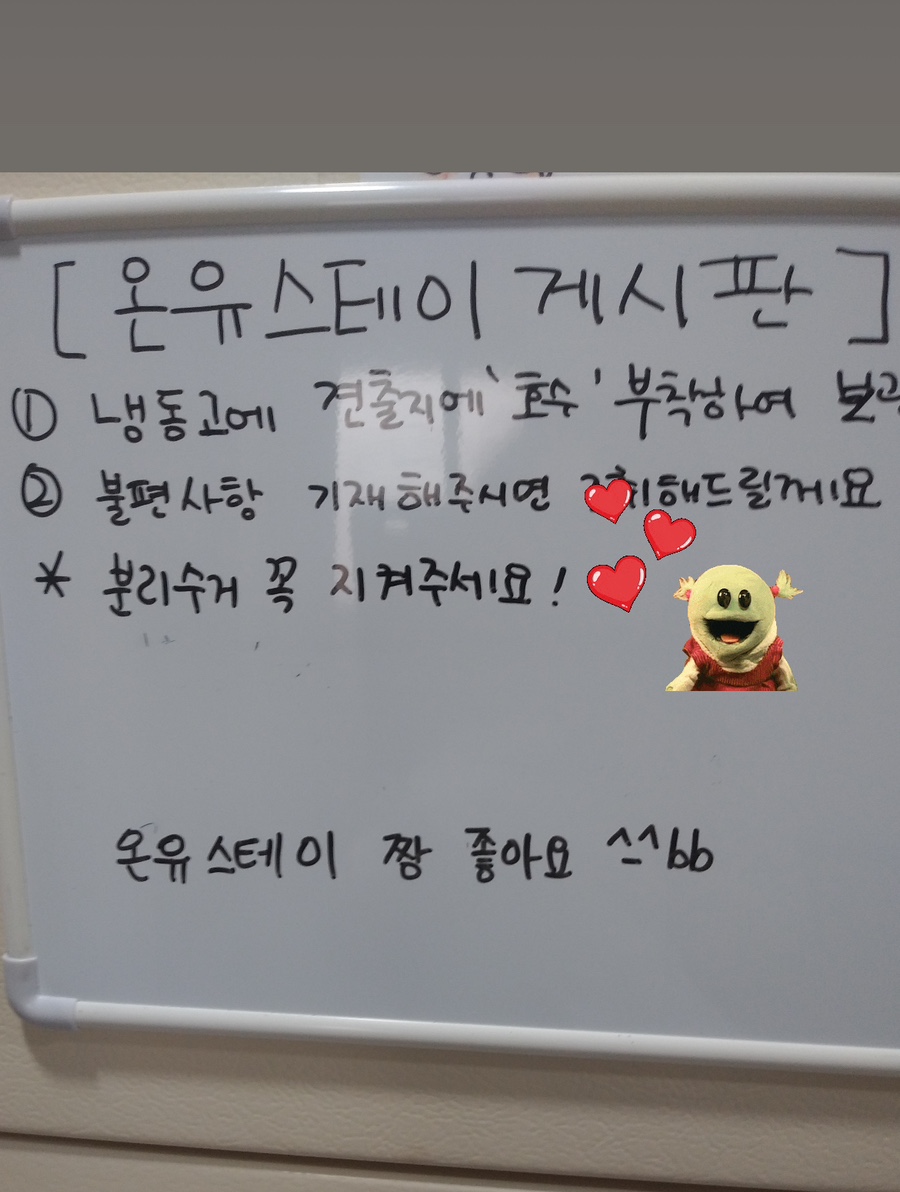 [ 온유스테이 게시판 ]
① 냉동고에 견출지에 '호수' 부착하여
② 불편사항 기재해주시면 해드릴께요
* 분리수거 꼭 지켜주세요!
온유스테이 짱 좋아요 ^-^bb